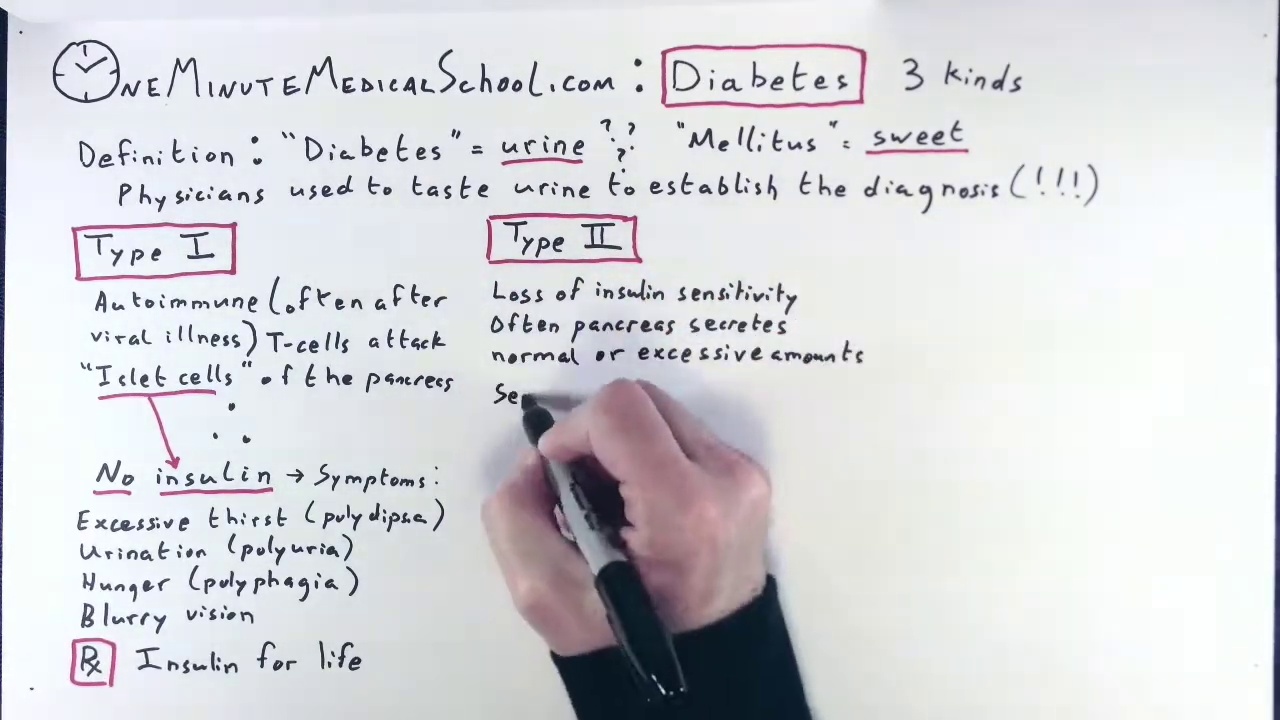 OneMinuteMedicalSchool.com: Diabetes 3 kinds
Definition: "Diabetes" = urine ??? "Mellitus" = sweet
Physicians used to taste urine to establish the diagnosis (!!!)
Type I
Autoimmune (often after
viral illness) T-cells attack
"Islet cells" of the pancreas
∴
No insulin → Symptoms:
Excessive thirst (polydipsa)
Urination (polyuria)
Hunger (polyphagia)
Blurry vision
Rx Insulin for life
Type II
Loss of insulin sensitivity
Often pancreas secretes
normal or excessive amounts
Se